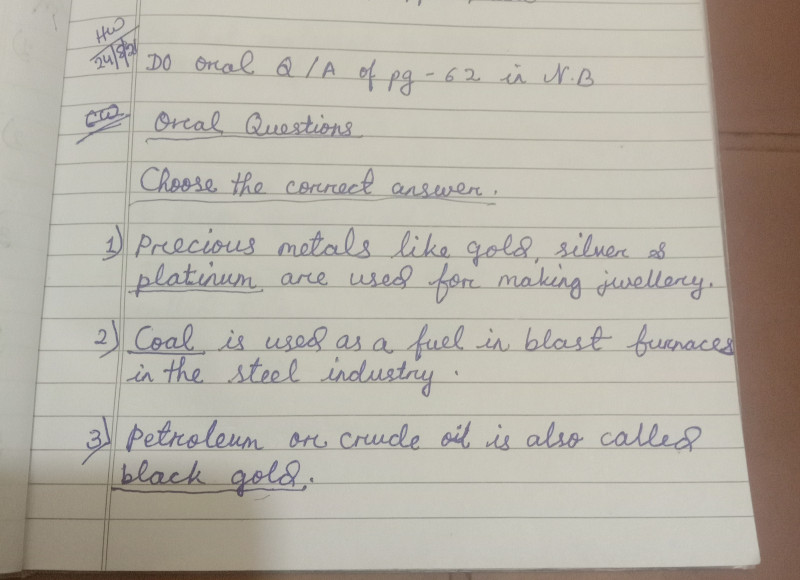 HW
24/8/21 Do oral Q/A of pg-62 in N.B
CW Oral Questions
Choose the correct answer.
1) Precious metals like gold, silver &
platinum are used for making jwellery.
2) Coal is used as a fuel in blast furnaces
in the steel industry.
3) Petroleum or crude oil is also called
black gold.